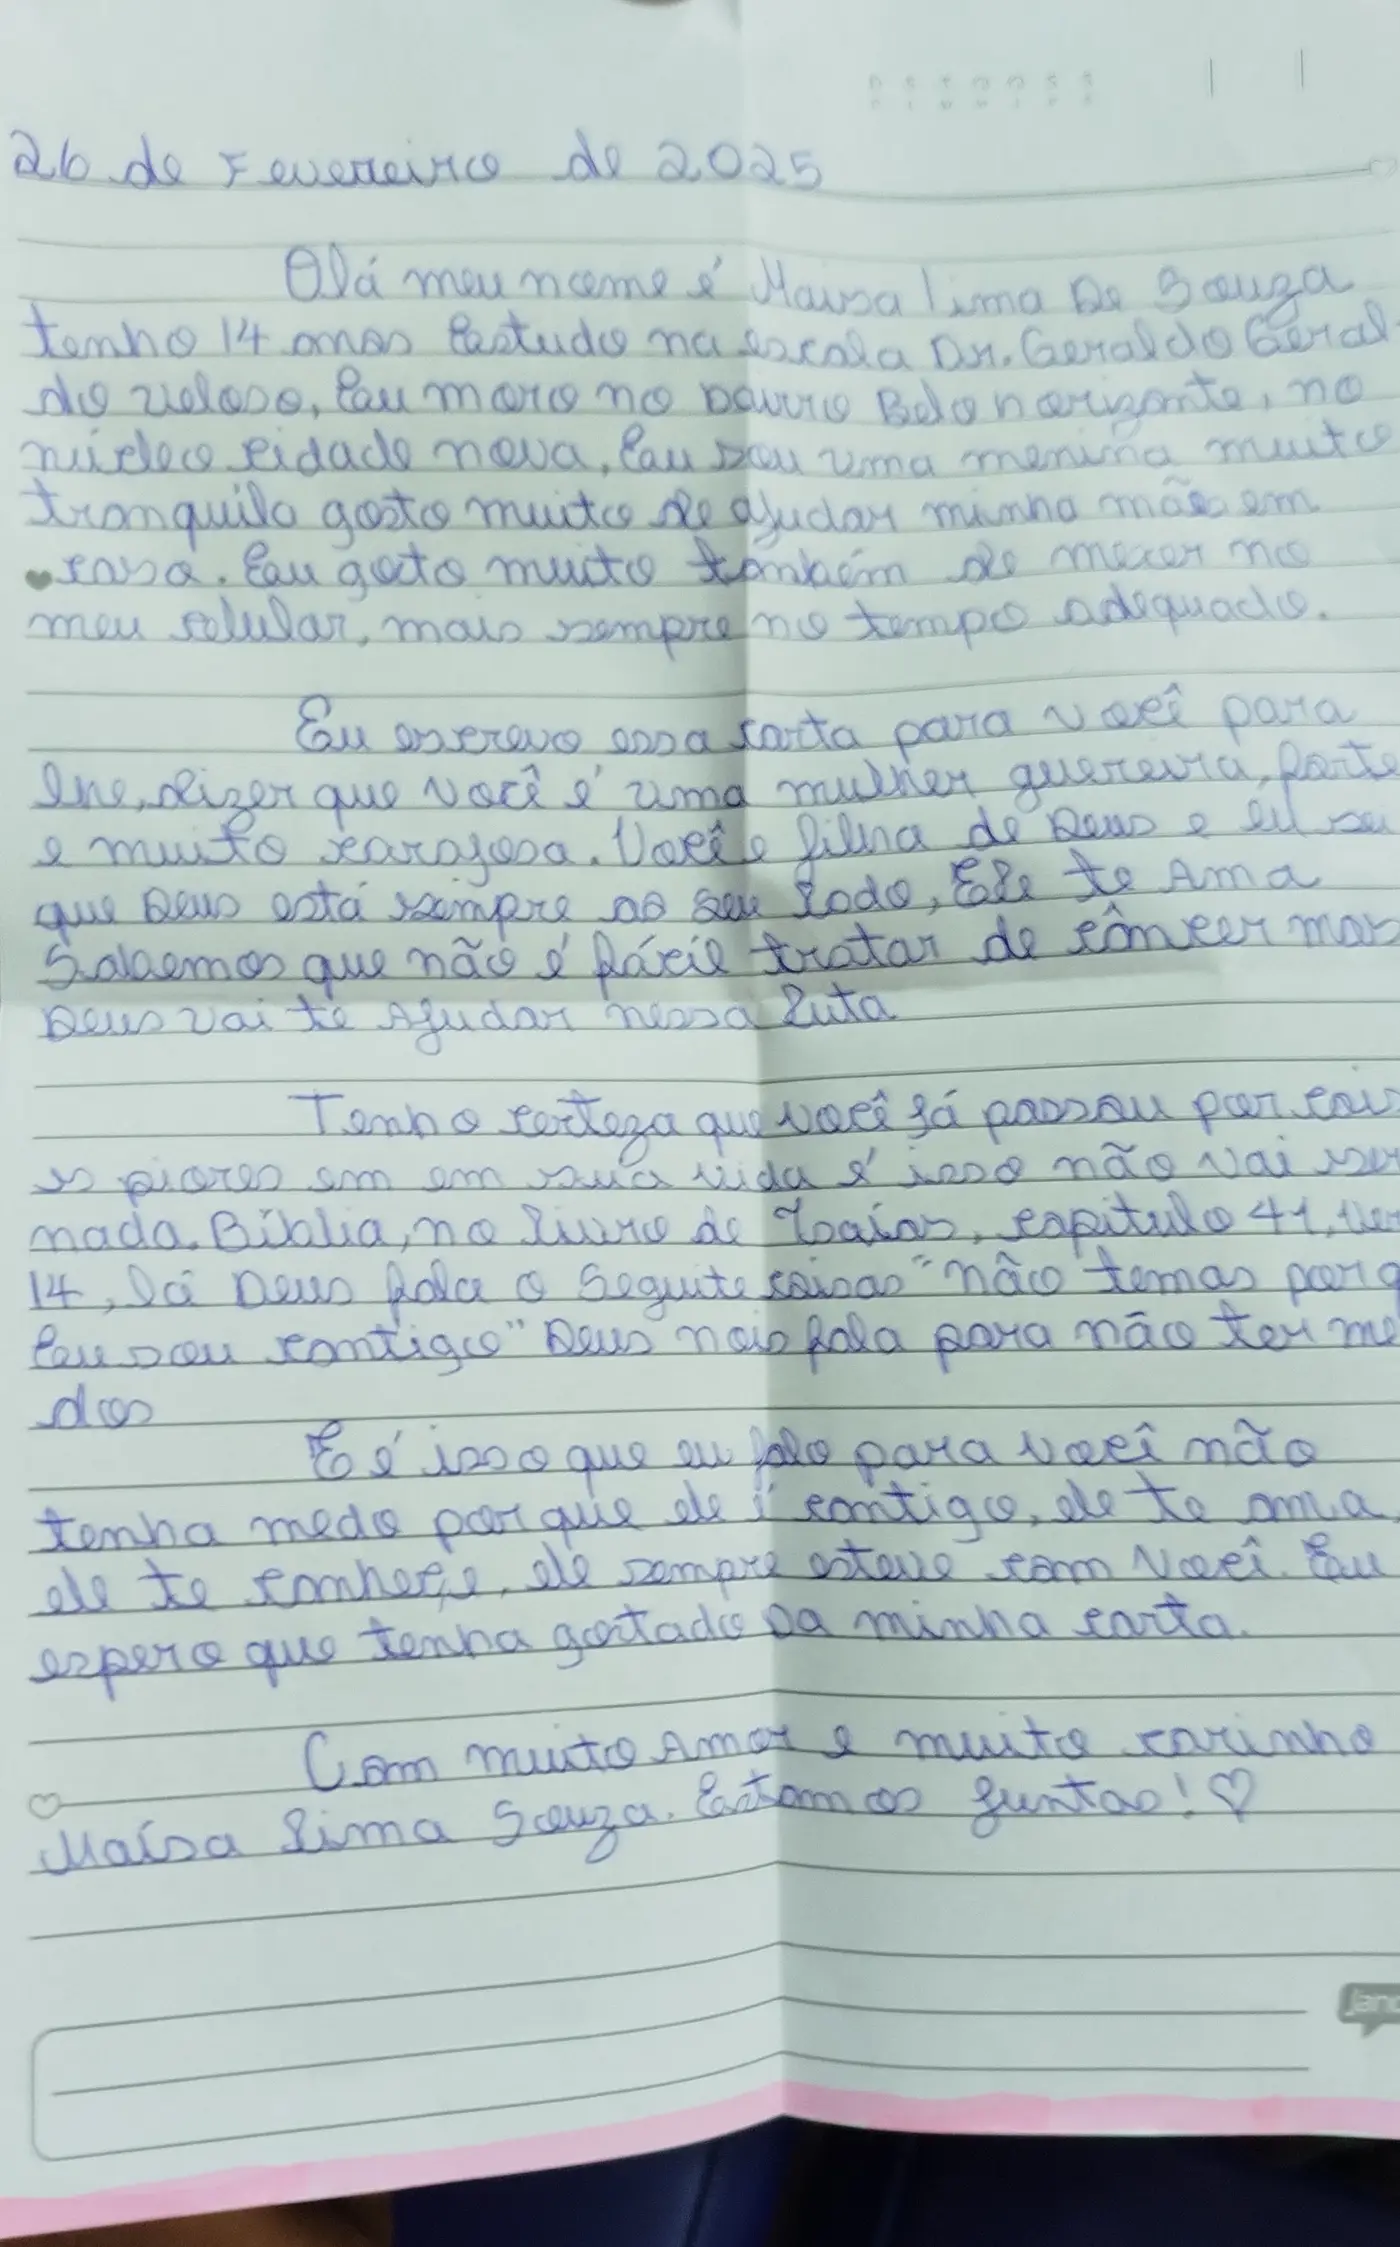 26 de Fevereiro de 2025
Olá meu nome é Maisa lima De Souza
tenho 14 anos Estudo na escola Dr. Geraldo Geral
do veloso, Eu moro no bairro Belo horizonte, no
núcleo cidade nova, Eu sou uma menina muito
tranquilo gosto muito de ajudar minha mães em
casa. Eu goto muito também de mexer no
meu celular, mais sempre no tempo adequado.
Eu escrevo essa carta para você para
lhe, dizer que você é uma mulher guereira, forte
e muito corajosa. Você e filha de Deus e eu sei
que Deus está sempre ao seu lado, Ele te Ama
Sabemos que não é fácil tratar de câncer mas
Deus vai te Ajudar nessa luta
Tenho certeza que você já passou por cois
as piores em em sua vida é isso não vai ser
nada. Bíblia, no livro de Isaías, capitulo 41, ver
14, lá Deus fala o Seguite coisas "não temas porq
Eu sou contigo" Deus nois fala para não ter me
dos
E é isso que eu falo para você não
tenha medo porque ele é contigo, ele te ama,
ele te conheçe, ele sempre esteve com você. Eu
espero que tenha gostado Da minha carta.
Com muito Amor e muito carinho
Maísa Lima Souza. Estamos juntas! ♡